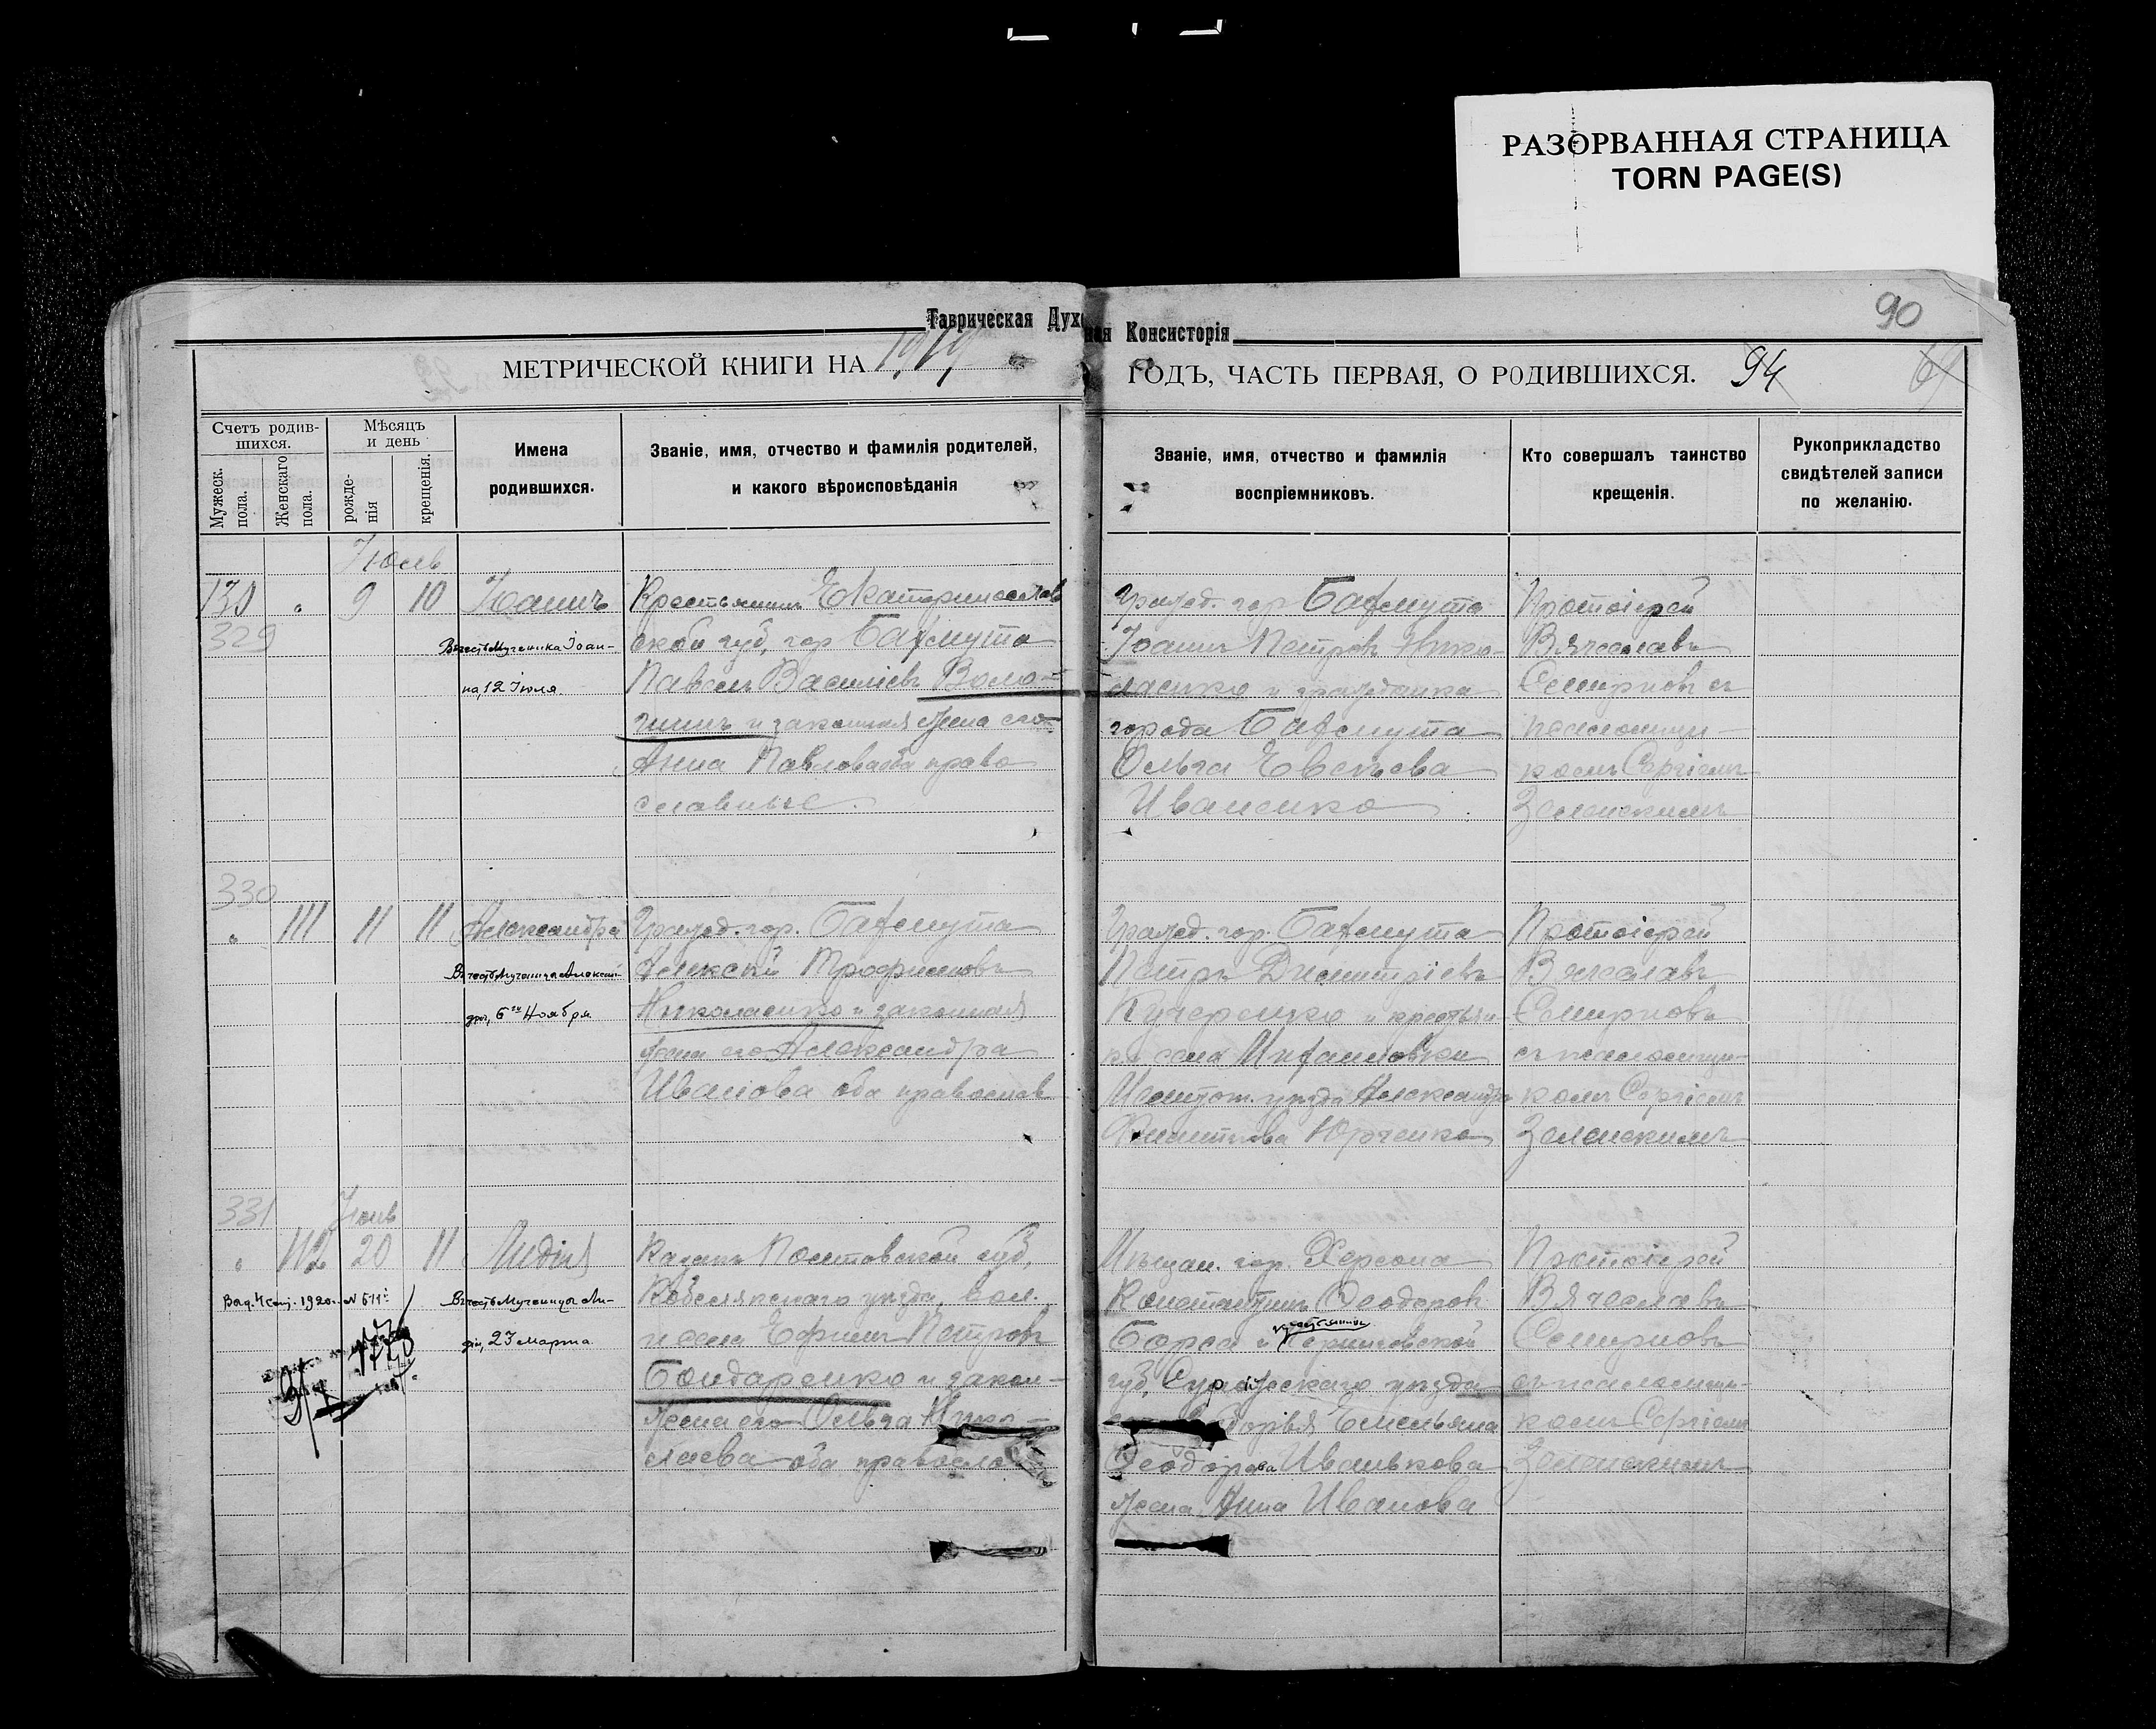 РАЗОРВАННАЯ СТРАНИЦА
TORN PAGE(S)
90
Таврическая Духовная Консисторія
МЕТРИЧЕСКОЙ КНИГИ НА 1919 ГОДЪ, ЧАСТЬ ПЕРВАЯ, О РОДИВШИХСЯ. 94
Счетъ родив-
шихся.
Мужеск. пола.
Женскаго пола.
Мѣсяцъ и день
рожде-
нія
крещенія.
Имена
родившихся.
Званіе, имя, отчество и фамилія родителей,
и какого вѣроисповѣданія
Званіе, имя, отчество и фамилія
воспріемниковъ.
Кто совершалъ таинство
крещенія.
Рукоприкладство
свидѣтелей записи
по желанію.
Іюль
130 " 9 10 Іоаннъ
329
Въ честь Мученика Іоан-
на, 12 Іюля
Крестьянинъ Екатеринослав
ской губ, гор Бахмута
Павелъ Василіевъ Воло-
шинъ и законная жена его
Анна Павлова оба право
славные.
Гражд. гор Бахмута
Іоаннъ Петровъ Нико-
лаенко и гражданка
города Бахмута
Ольга
Иваненко
Протоіерей
Вячеславъ
Смирновъ съ
псаломщи-
комъ Сергіемъ
Зеленскимъ
330
" 111 11 11 Александра
Въ честь Мученицы Алексан-
дры, 6го Ноября
Гражд. гор. Бахмута
Алексѣй Трофимовъ
Николаенко и законная
жена его Александра
Иванова оба православ
Гражд. гор. Бахмута
Петръ Димитріевъ
Кучеренко и крестьян-
ка села Михайловки
Мелитоп. уѣзда Александра
Юрченко
Протоіерей
Вячеславъ
Смирновъ
съ псаломщи-
комъ Сергіемъ
Зеленскимъ
331
Іюнь
" 112 20 11 Лидія
1920 № 511
Въ честь Мученицы Ли-
діи, 23 Марта
Казакъ Полтавской губ,
Кобелякскаго уѣзда,
Ефимъ Петровъ
Бондаренко и закон-
жена его Ольга Нико-
лаева оба правосла
Мѣщан. гор. Херсона
Константинъ Ѳеодоровъ
и крестьянина Черниговской
губ, Суражскаго уѣзда
Емельяна
Ѳеодорова Иванькова
жена Анна Иванова
Протоіерей
Вячеславъ
Смирновъ
съ псаломщи-
комъ Сергіемъ
Зеленскимъ